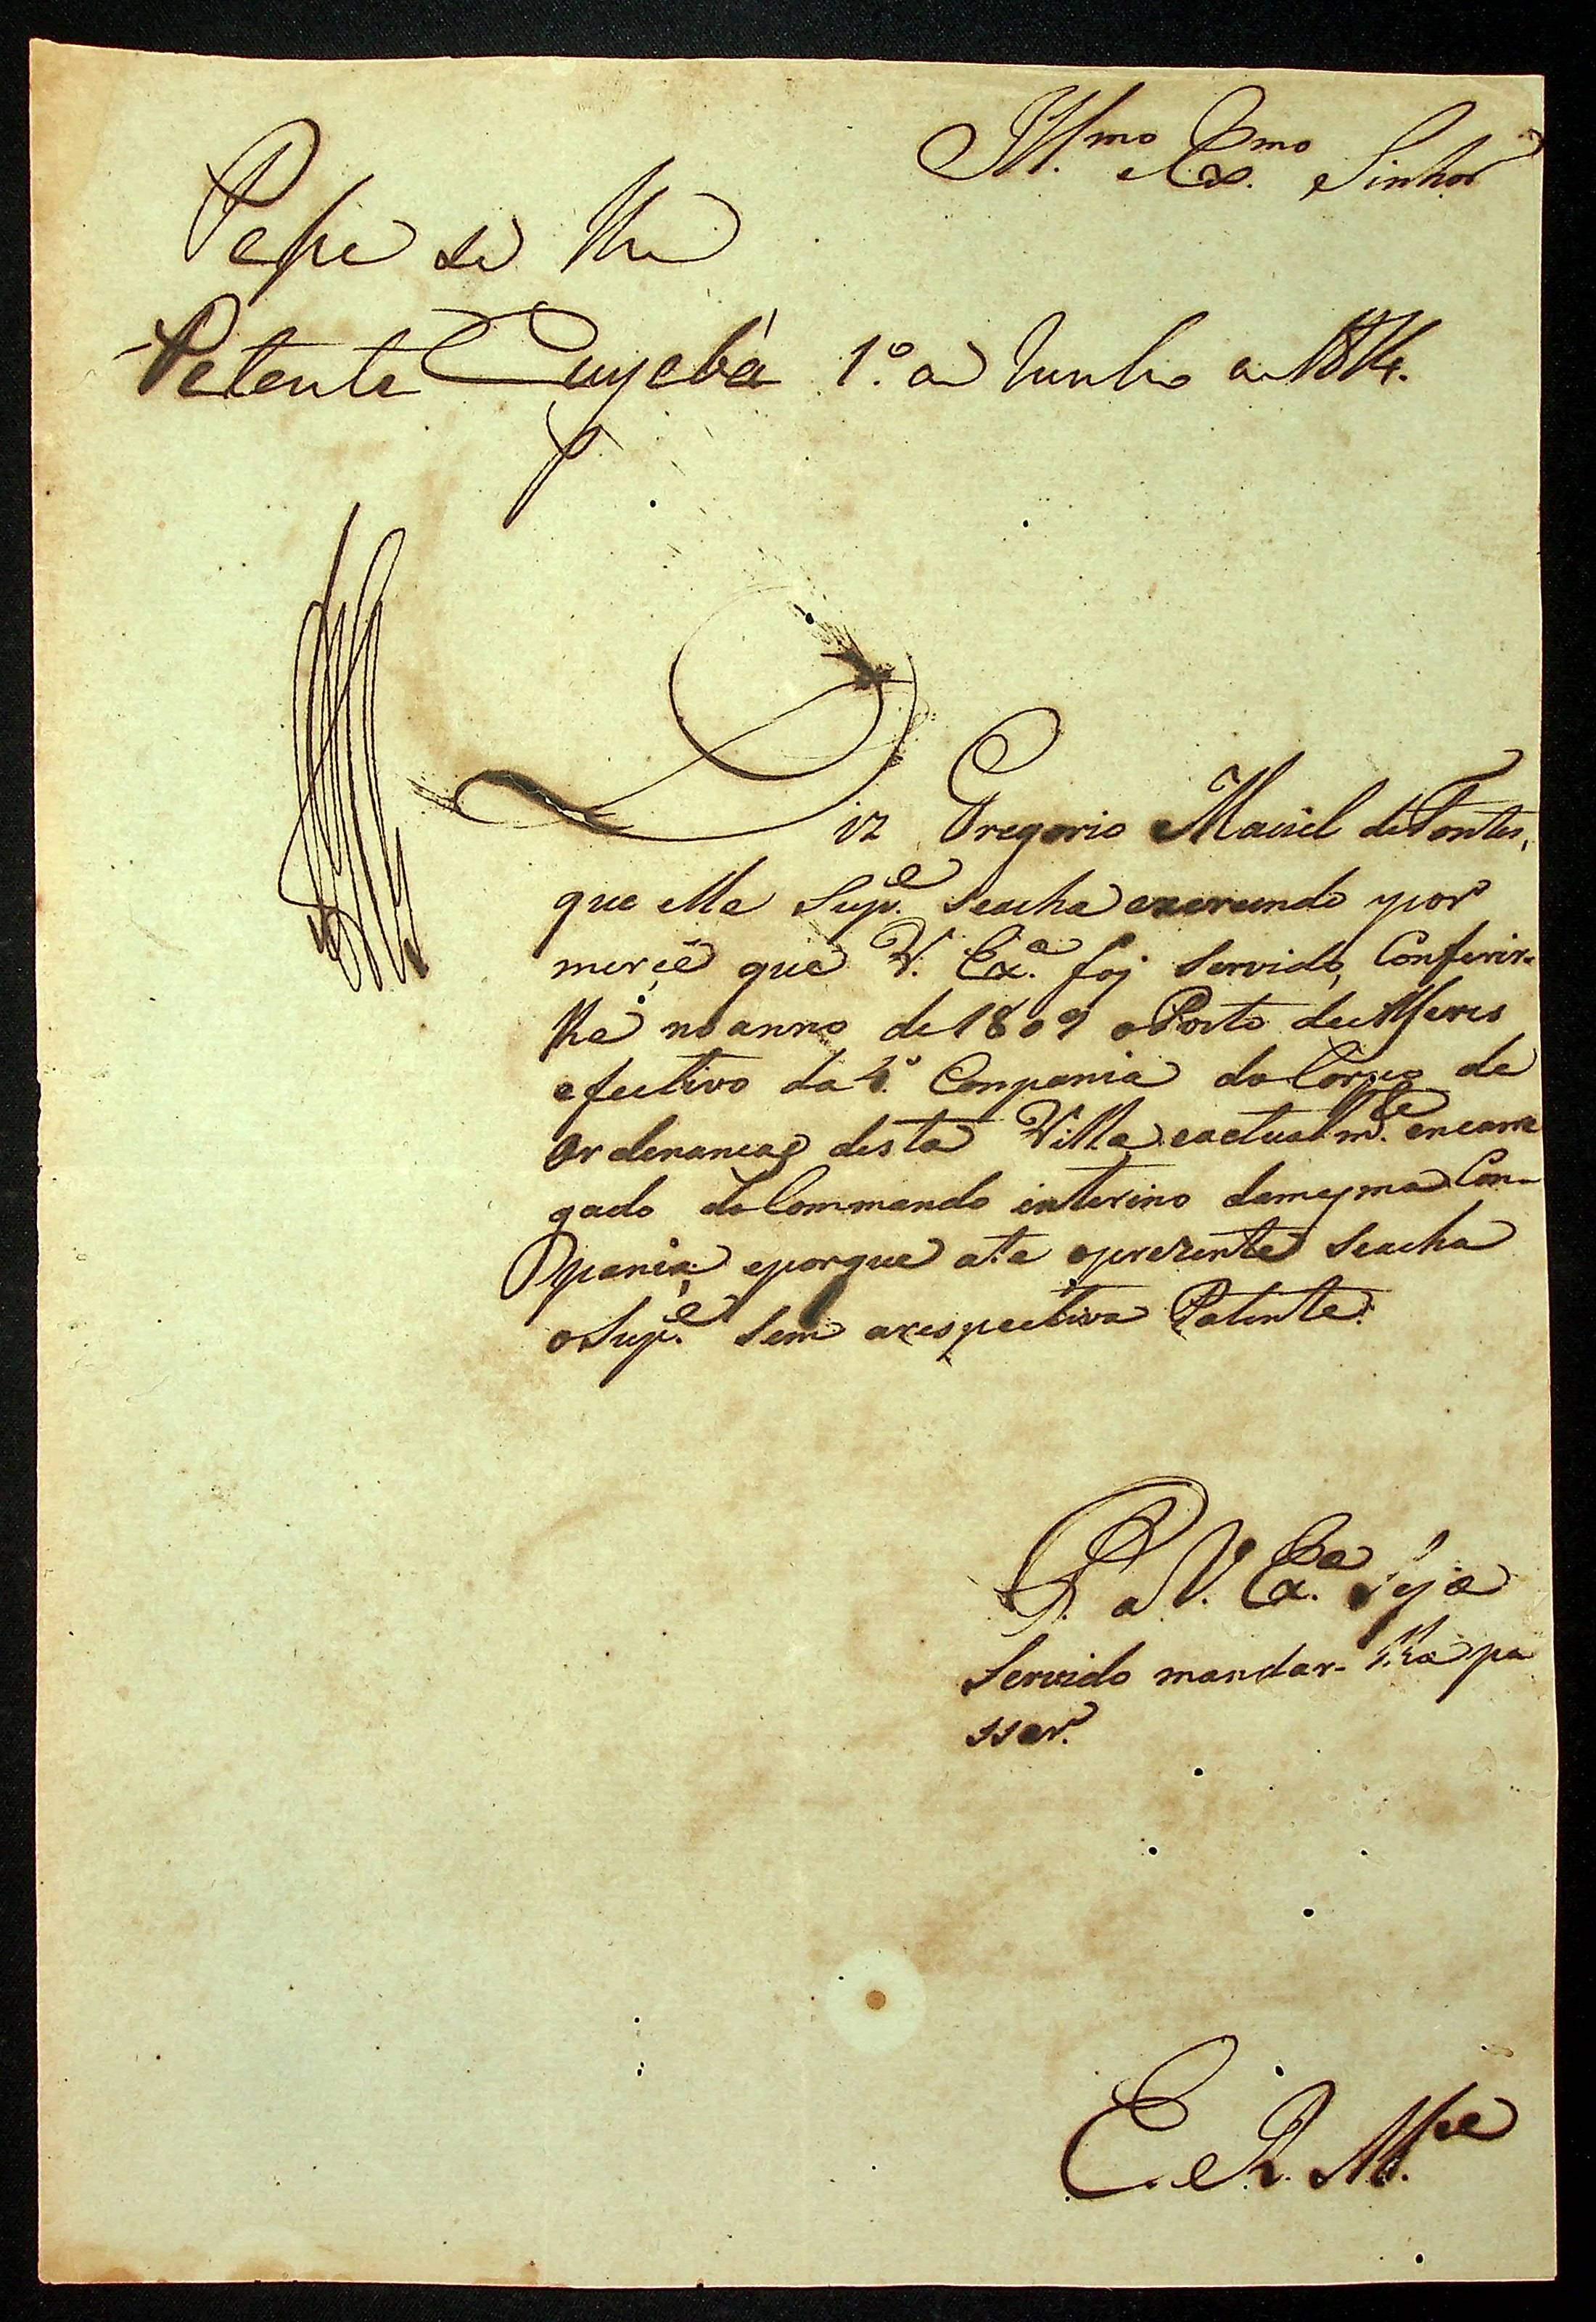 Ill.mo e Ex.mo Sinhor
Pase se lhe
Patente Cuyabá 1.º de Junho de 1814.
Diz Gregorio Maciel de Fontes,
que elle Sup.e se acha exercendo por
mercê que V. Ex.a foj servido, Conferir-
lhe no anno de 1809 o Posto de Alferes
efectivo da 4.ª Conpania do Corpo de
Ordenancas desta Villa, e actualm.te encarre
gado do Commando interino da mesma Con-
pania; e porque ate o prezente se acha
o Sup.e sem a respectiva Patente.
P. a V. Ex.a seja
servido mandar-lha pa
ssar.
E. R. M.ce